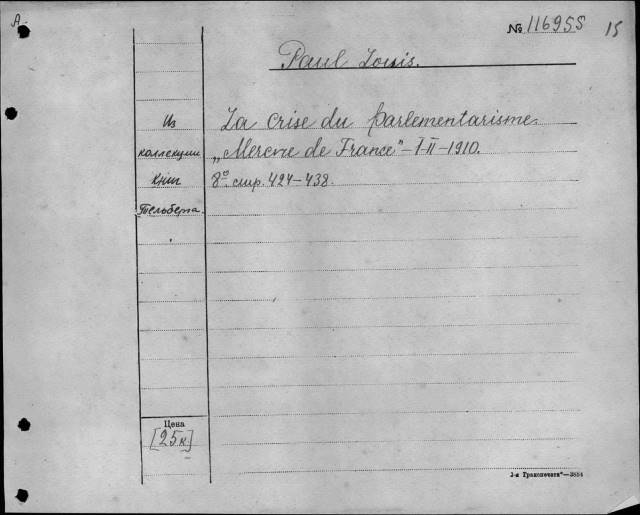 A.
№ 116955 15
Paul Louis.
Из La crise du parlementarisme.
коллекции „Mercure de France" – I-II – 1910.
книг 8° стр. 424–438.
Тельберга.
Цена
[25 к]